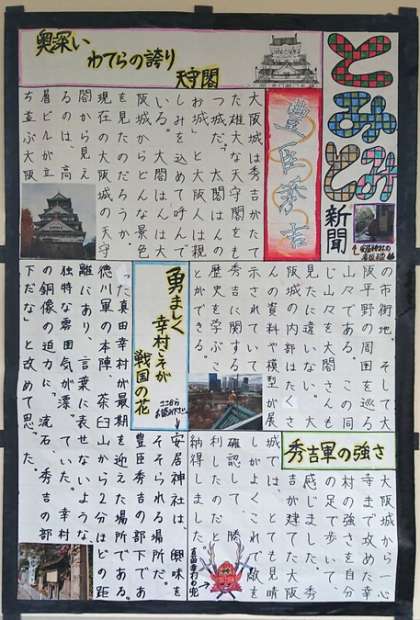 とみとみ
新聞
奥深い
わてらの誇り
天守閣
豊臣秀吉
大阪城は秀吉がたて
た雄大な天守閣をも
つ城だ。太閤はんの
お城」と大阪人は親
しみを込めて呼んで
いる。太閤はんは大
阪城からどんな景色
を見たのだろうか。
現在の大阪城の天守
閣から見え
るのは、高
層ビルが立
ち並ぶ大阪
の市街地、そして大
阪平野の周囲を巡る
山々である。この同
じ山々を太閤さんも
見たに違いない。大
阪城の内部はたくさ
んの資料や模型が展
示されていて、
秀吉に関する
歴史を学ぶこ
とができる。
秀吉軍の強さ
大阪城から一心
寺まで攻めた幸
村の強さを自分
の足で歩いて、
感じました。秀
吉が建てた大阪
城では、とても見晴
しがよくこれで敵を
確認して、勝
利したのだと
納得しました。
真田幸村の兜
勇ましく
幸村こそが
戦国の花
安居神社は、興味を
そそられる場所だ。
豊臣秀吉の部下であ
った真田幸村が最期を迎えた場所である。
徳川軍の本陣、茶臼山から2分ほどの距
離にあり、言葉に表せないような、
独特な雰囲気が漂っていた。幸村
の銅像の迫力に、流石、秀吉の部
下だな」と改めて思った。